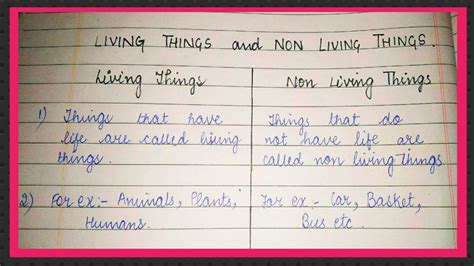 LIVING THINGS and NON LIVING THINGS.
Living Things
Non Living Things
1) Things that have
life are called living
things.
Things that do
not have life are
called non living things
2) For ex:- Animals, Plants,
Humans.
For ex:- Car, Basket,
Bus etc.